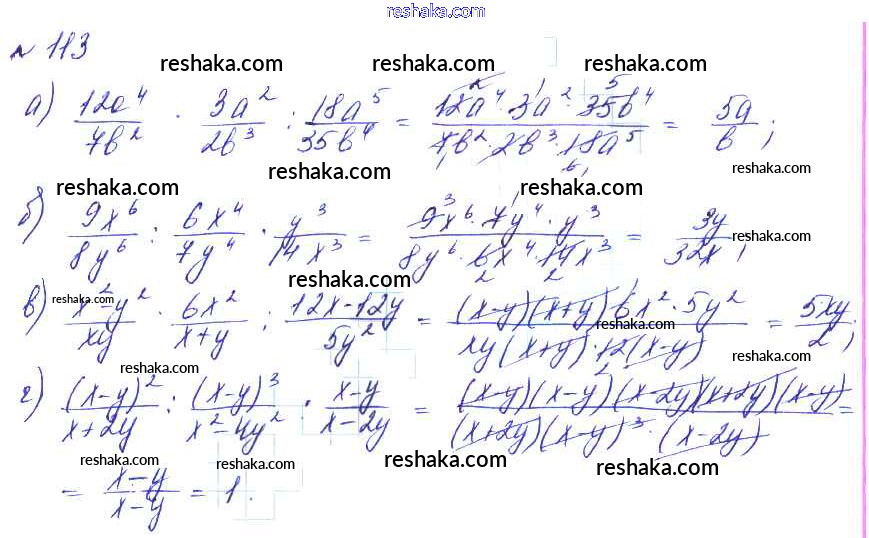 reshaka.com
№ 113
reshaka.com reshaka.com reshaka.com
а) 12a⁴/7b² · 3a²/2b³ : 18a⁵/35b⁴ = 12a⁴ · 3a² · 35b⁴/7b² · 2b³ · 18a⁵ = 5a/b ;
2 1 5
1 1 6 1
reshaka.com reshaka.com reshaka.com
б) 9x⁶/8y⁶ : 6x⁴/7y⁴ · y³/14x³ = 9x⁶ · 7y⁴ · y³/8y⁶ · 6x⁴ · 14x³ = 3y/32x ;
3 1
2 2
reshaka.com
reshaka.com
reshaka.com
в) x²-y²/xy · 6x²/x+y : 12x-12y/5y² = (x-y)(x+y) 6x² · 5y²/xy(x+y) · 12(x-y) = 5xy/2 ;
1
2
reshaka.com
reshaka.com
reshaka.com
г) (x-y)²/x+2y : (x-y)³/x²-4y² · x-y/x-2y = (x-y)(x-y)(x-2y)(x+2y)(x-y)/(x+2y)(x-y)³ · (x-2y) =
reshaka.com reshaka.com reshaka.com reshaka.com
= x-y/x-y = 1.